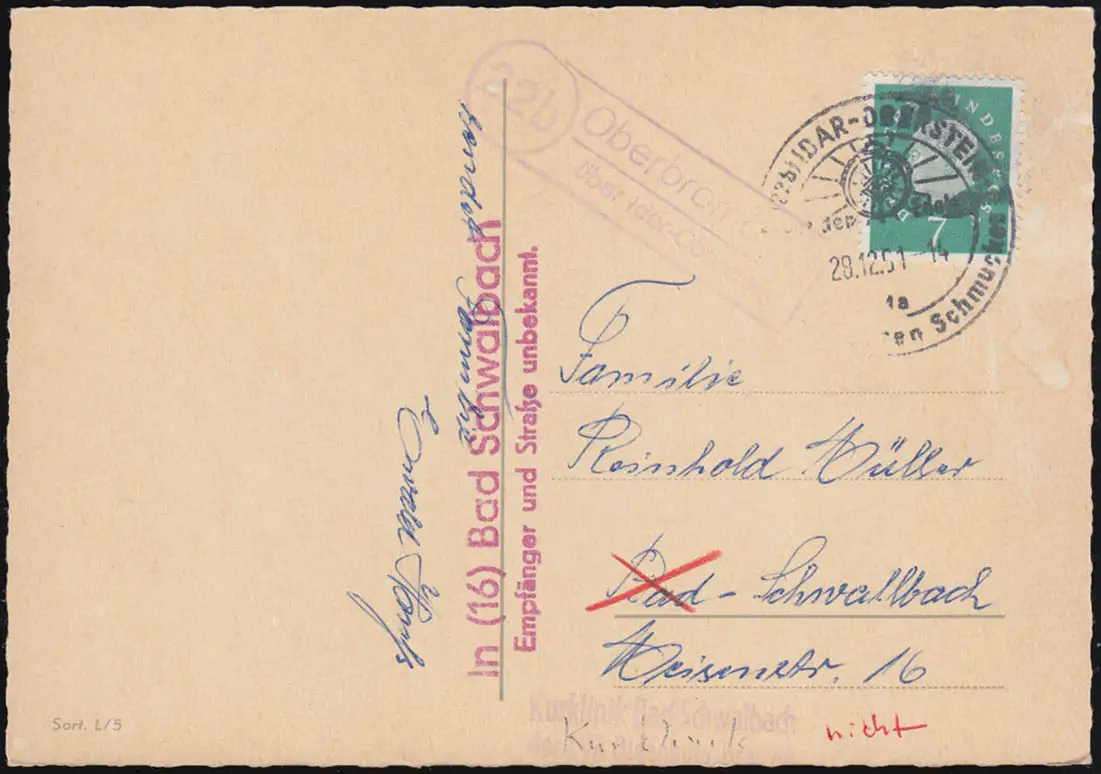 22b
Oberbrom
über Idar-Ob
(22b) IDAR-OBERSTEIN
BUNDESPOST
7
28.12.61-14
ren Schmuck
Familie
Reinhold Müller
Bad-Schwallbach
Meisenstr. 16
sendet Familie
Ewald
In (16) Bad Schwalbach
Empfänger und Straße unbekannt.
Kurklinik Bad Schwalbach
Kurklinik
nicht
Sort. L/5